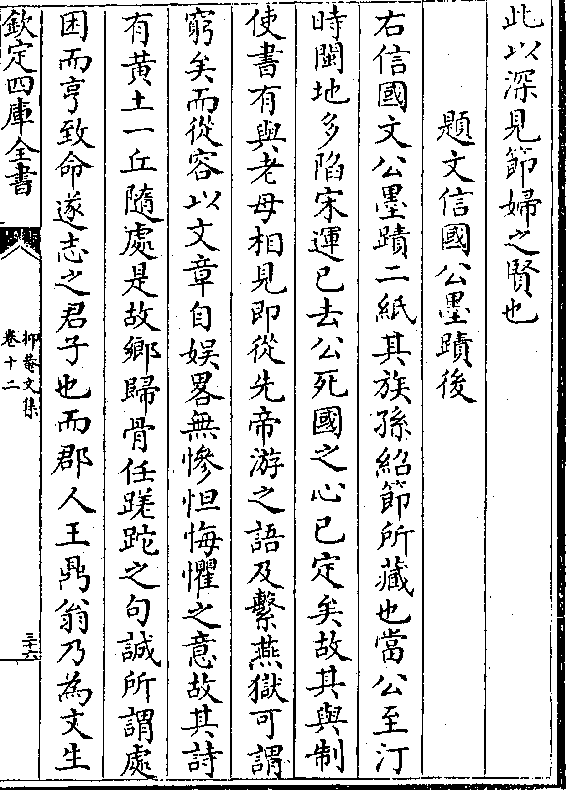 此以深見節婦之賢也
題文信國公墨蹟後
右信國文公墨蹟二紙其族孫紹節所藏也當公至汀
時閩地多陷宋運已去公死國之心已定矣故其與制
使書有與老母相見即從先帝游之語及繫燕獄可謂
窮矣而從容以文章自娛畧無慘怛悔懼之意故其詩
有黃土一丘隨處是故鄉歸骨任蹉跎之句誠所謂處
困而亨致命遂志之君子也而郡人王鼎翁乃為文生
欽定四庫全書
抑菴文集
卷十二
三六